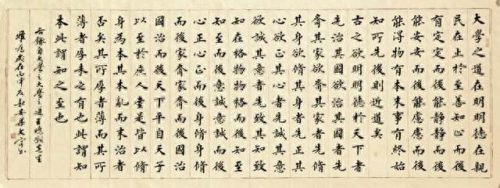 大學之道在明明德在親
民在止於至善知止而後
有定定而後能靜靜而後
能安安而後能慮慮而後
能得物有本末事有終始
知所先後則近道矣
古之欲明明德於天下者
先治其國欲治其國者先
齊其家欲齊其家者先脩
其身欲脩其身者先正其
心欲正其心者先誠其意
欲誠其意者先致其知致
知在格物物格而後知至
知至而後意誠意誠而後
心正心正而後身脩身脩
而後家齊家齊而後國治
國治而後天下平自天子
以至於庶人壹是皆以脩
身為本其本亂而末治者
否矣其所厚者薄而其所
薄者厚未之有也此謂知
本此謂知之至也